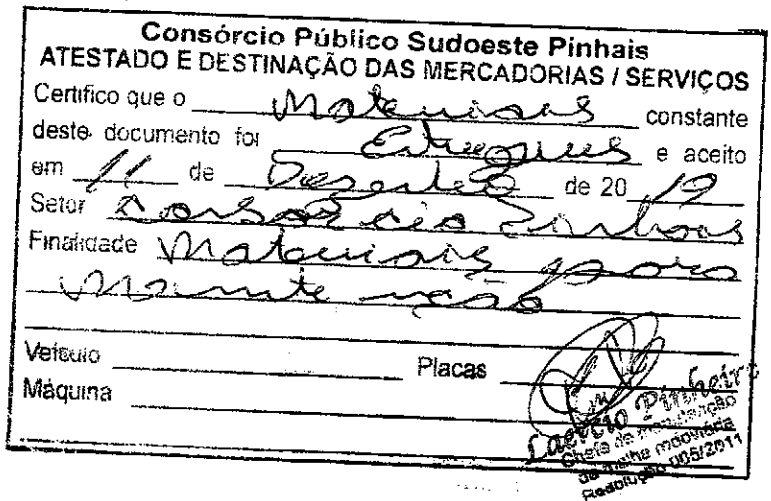 Consórcio Público Sudoeste Pinhais
ATESTADO E DESTINAÇÃO DAS MERCADORIAS / SERVIÇOS
Certifico que o Materiais constante
deste documento foi Entregues e aceito
em 11 de Dezembro de 20 19
Setor Consorcio Pinhais
Finalidade Materiais para
Manutenção
Veículo Placas
Máquina
Laercio Pinheiro
Chefe de manutenção
da malha rodoviária
Resolução 005/2011